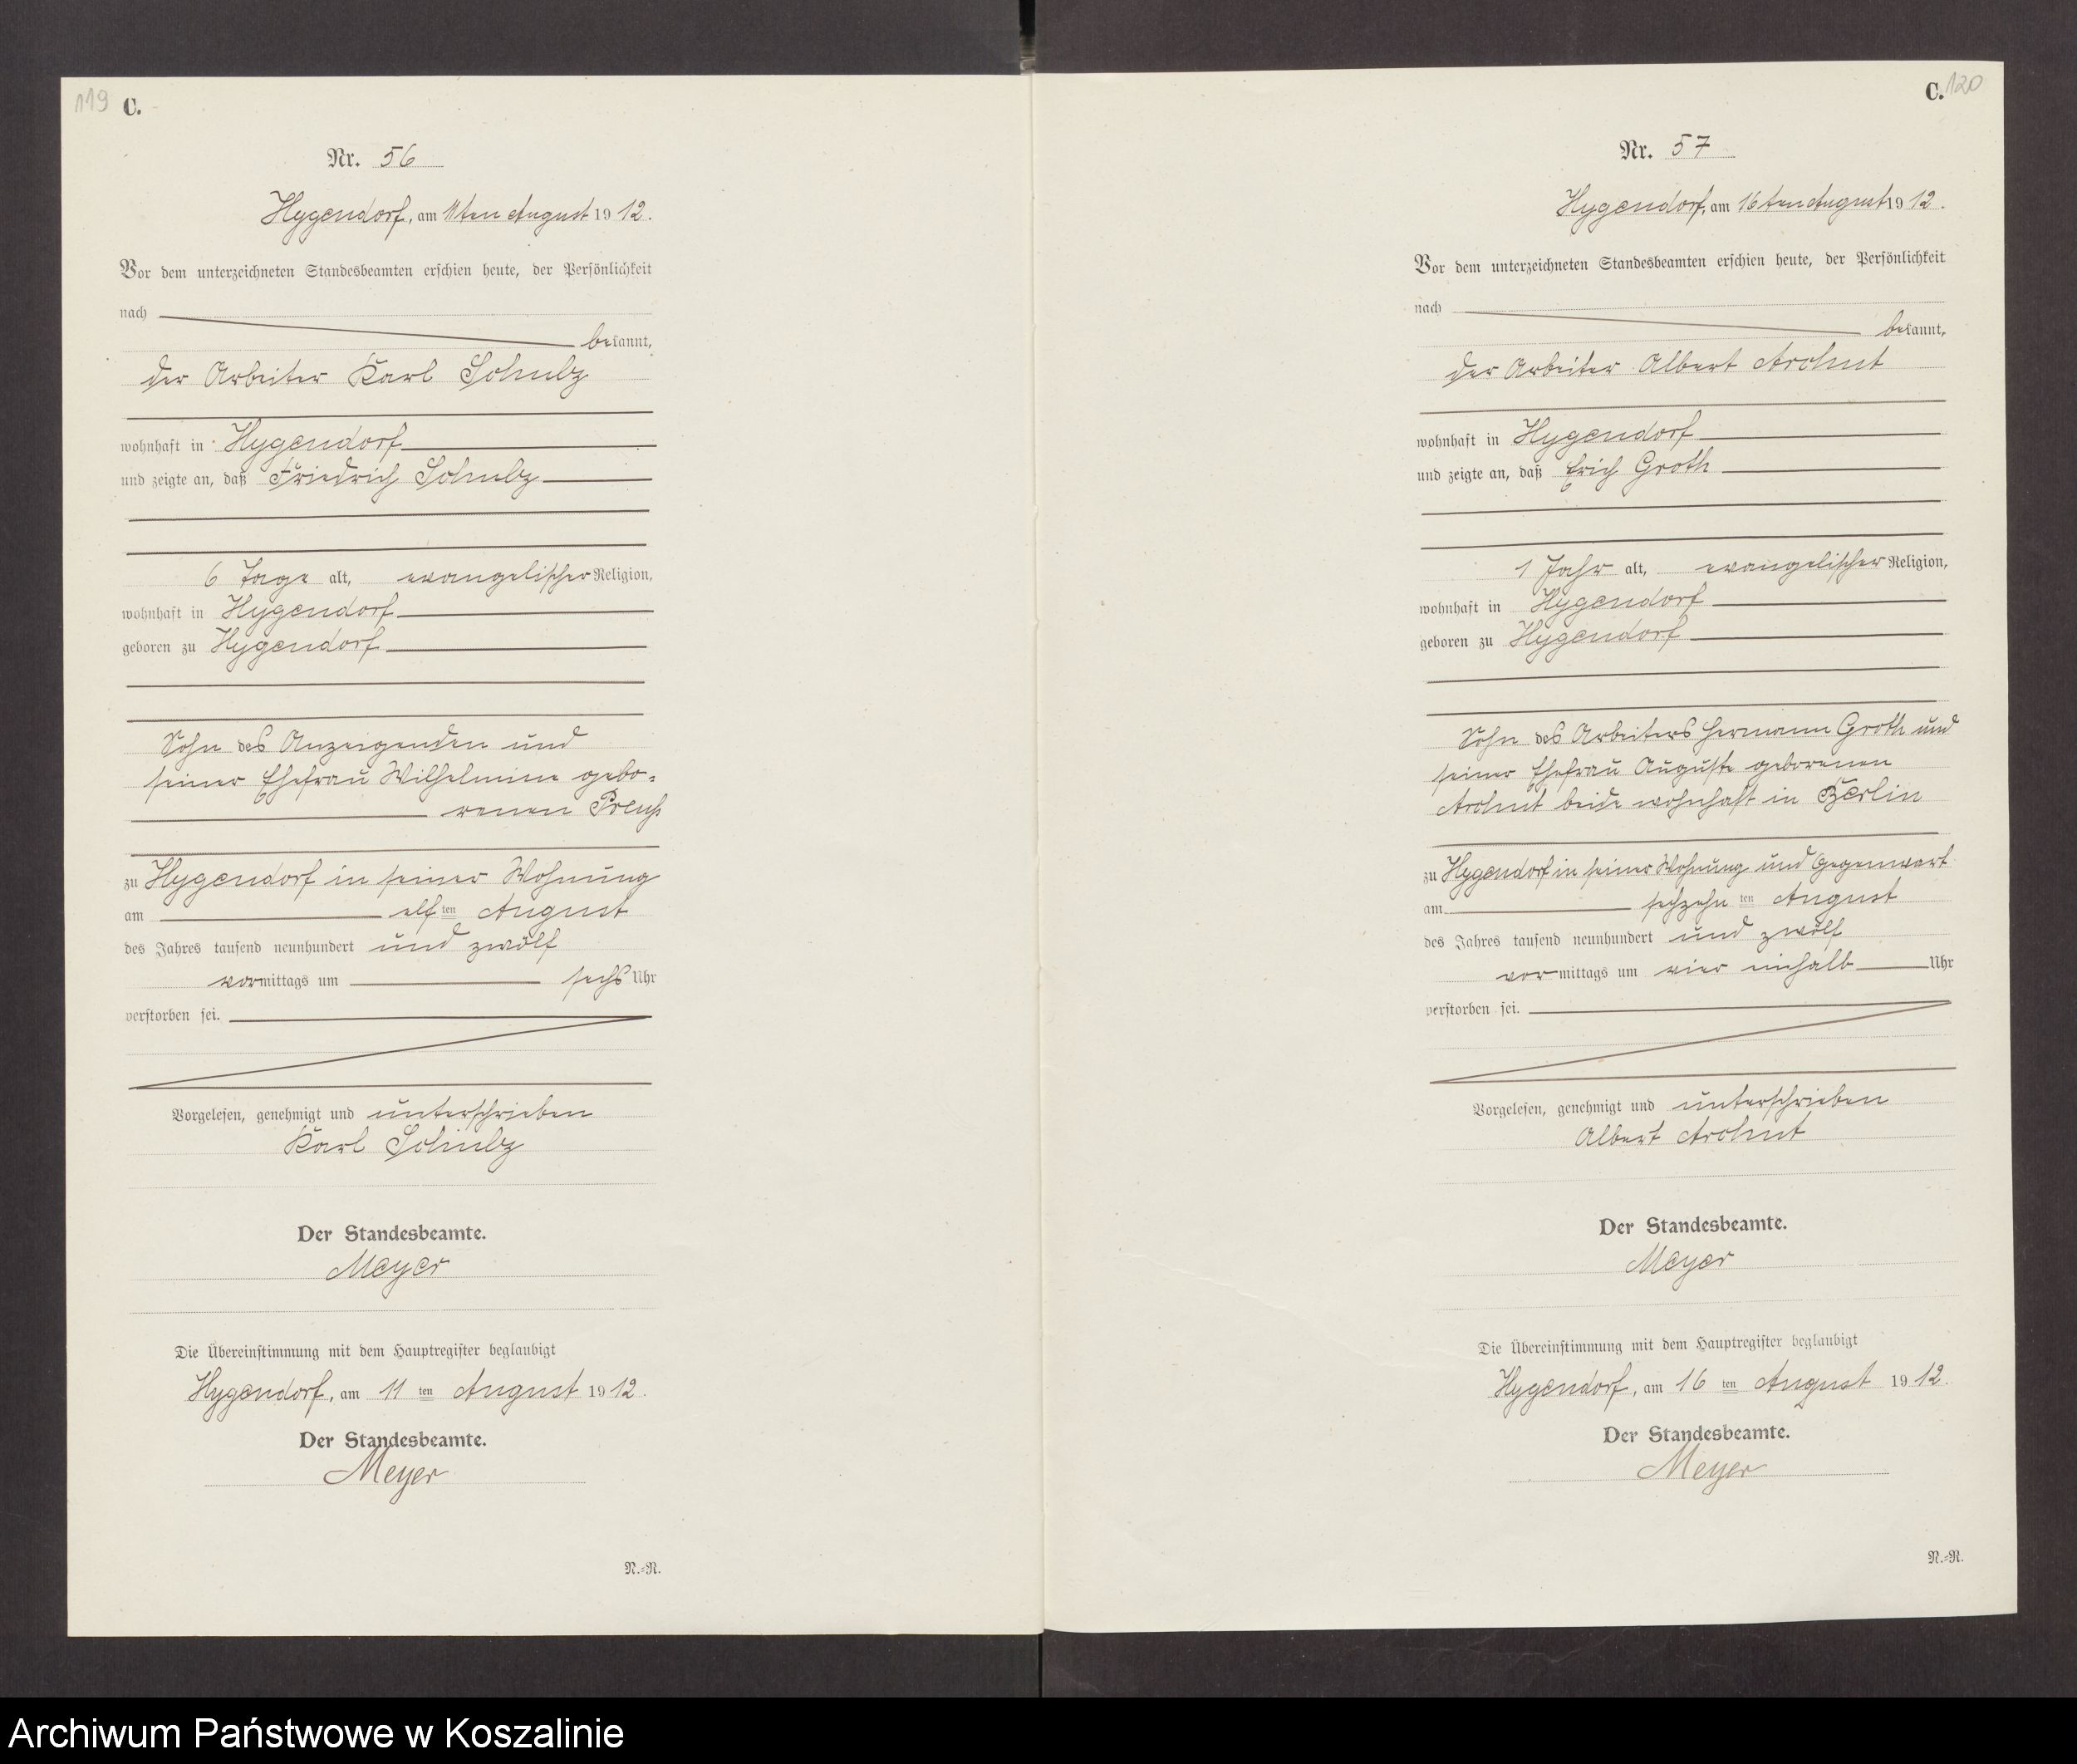 119 C.
Nr. 56
Hygendorf, am 11ten August 1912.
Vor dem unterzeichneten Standesbeamten erschien heute, der Persönlichkeit
nach
bekannt,
der Arbeiter Karl Schulz
wohnhaft in Hygendorf
und zeigte an, daß Friedrich Schulz
6 Tage alt, evangelischer Religion,
wohnhaft in Hygendorf
geboren zu Hygendorf
Sohn des Anzeigenden und
seiner Ehefrau Wilhelmine gebo-
renen Preuß
zu Hygendorf in seiner Wohnung
am elften August
des Jahres tausend neunhundert und zwölf
vormittags um sechs Uhr
verstorben sei.
Vorgelesen, genehmigt und unterschrieben
Karl Schulz
Der Standesbeamte.
Meyer
Die Übereinstimmung mit dem Hauptregister beglaubigt
Hygendorf, am 11ten August 1912.
Der Standesbeamte.
Meyer
N.=R.
C. 120
Nr. 57
Hygendorf, am 16ten August 1912.
Vor dem unterzeichneten Standesbeamten erschien heute, der Persönlichkeit
nach
bekannt,
der Arbeiter Albert Archut
wohnhaft in Hygendorf
und zeigte an, daß Erich Groth
1 Jahr alt, evangelischer Religion,
wohnhaft in Hygendorf
geboren zu Hygendorf
Sohn des Arbeiters Hermann Groth und
seiner Ehefrau Auguste geborenen
Archut beide wohnhaft in Berlin
zu Hygendorf in seiner Wohnung und Gegenwart
am sechzehnten August
des Jahres tausend neunhundert und zwölf
vormittags um vier einhalb Uhr
verstorben sei.
Vorgelesen, genehmigt und unterschrieben
Albert Archut
Der Standesbeamte.
Meyer
Die Übereinstimmung mit dem Hauptregister beglaubigt
Hygendorf, am 16ten August 1912.
Der Standesbeamte.
Meyer
N.=R.
Archiwum Państwowe w Koszalinie